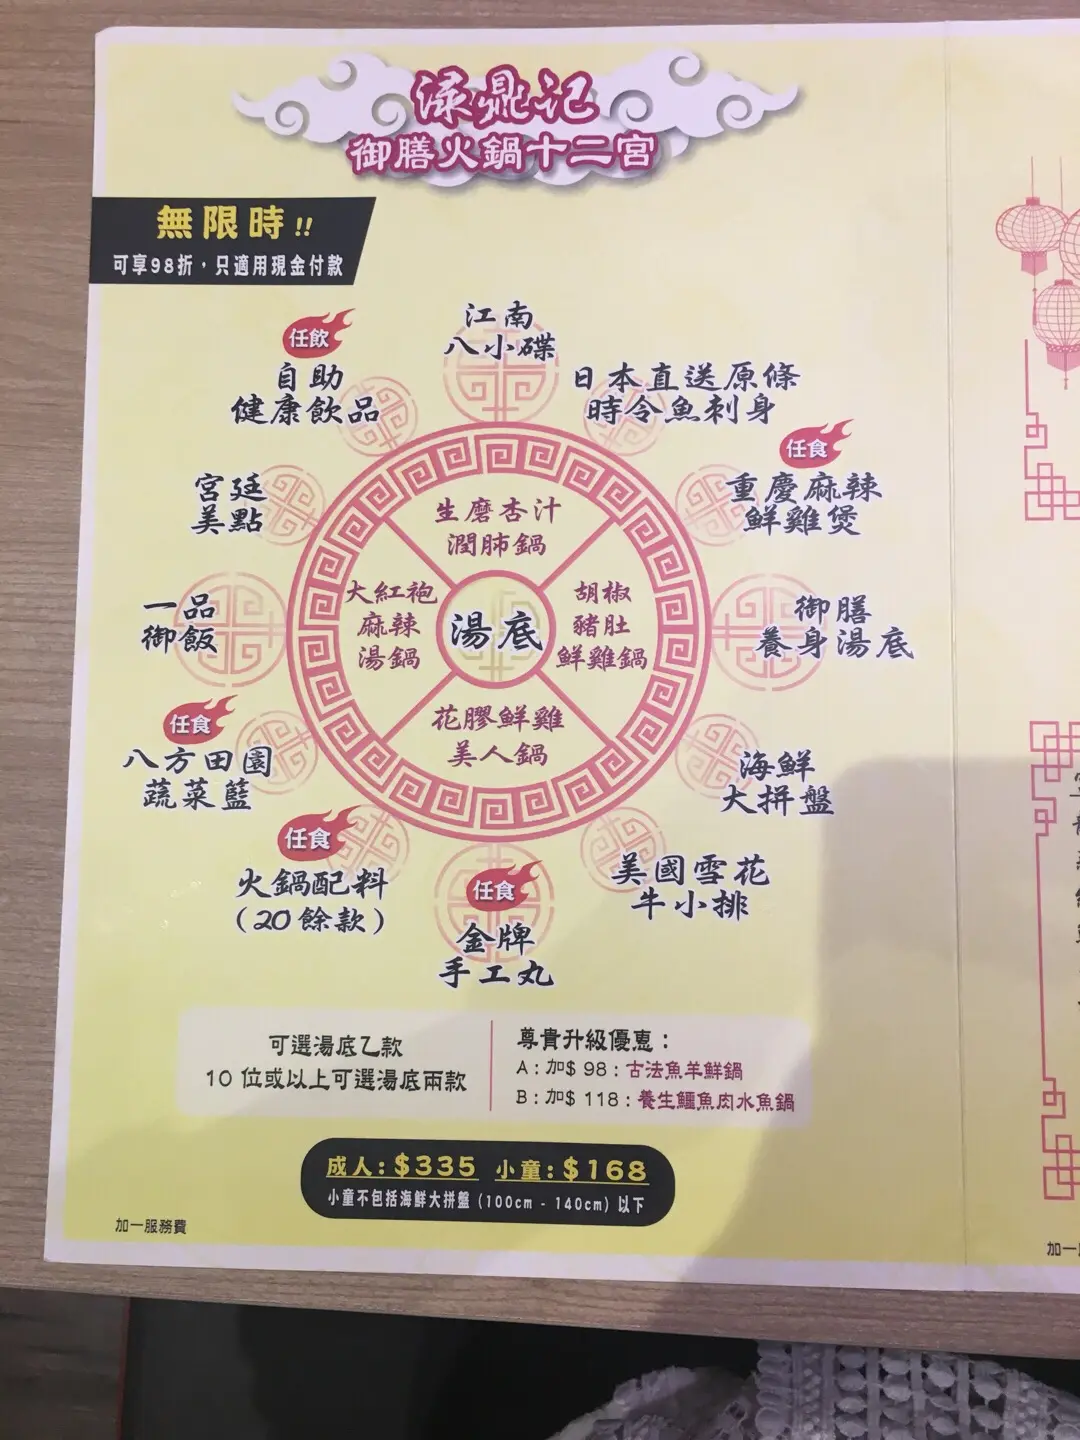 渌鼎记
御膳火鍋十二宮
無限時!!
可享98折，只適用現金付款
江南
八小碟
任飲
自助
健康飲品
日本直送原條
時令魚刺身
任食
重慶麻辣
鮮雞煲
宮廷
美點
生磨杏汁
潤肺鍋
大紅袍
麻辣
湯鍋
湯底
胡椒
豬肚
鮮雞鍋
花膠鮮雞
美人鍋
一品
御飯
御膳
養身湯底
任食
八方田園
蔬菜籃
海鮮
大拼盤
任食
火鍋配料
(20餘款)
任食
金牌
手工丸
美國雪花
牛小排
可選湯底乙款
10 位或以上可選湯底兩款
尊貴升級優惠：
A：加$ 98：古法魚羊鮮鍋
B：加$ 118：養生鱷魚肉水魚鍋
成人：$335 小童：$168
小童不包括海鮮大拼盤 (100cm - 140cm) 以下
加一服務費
加一